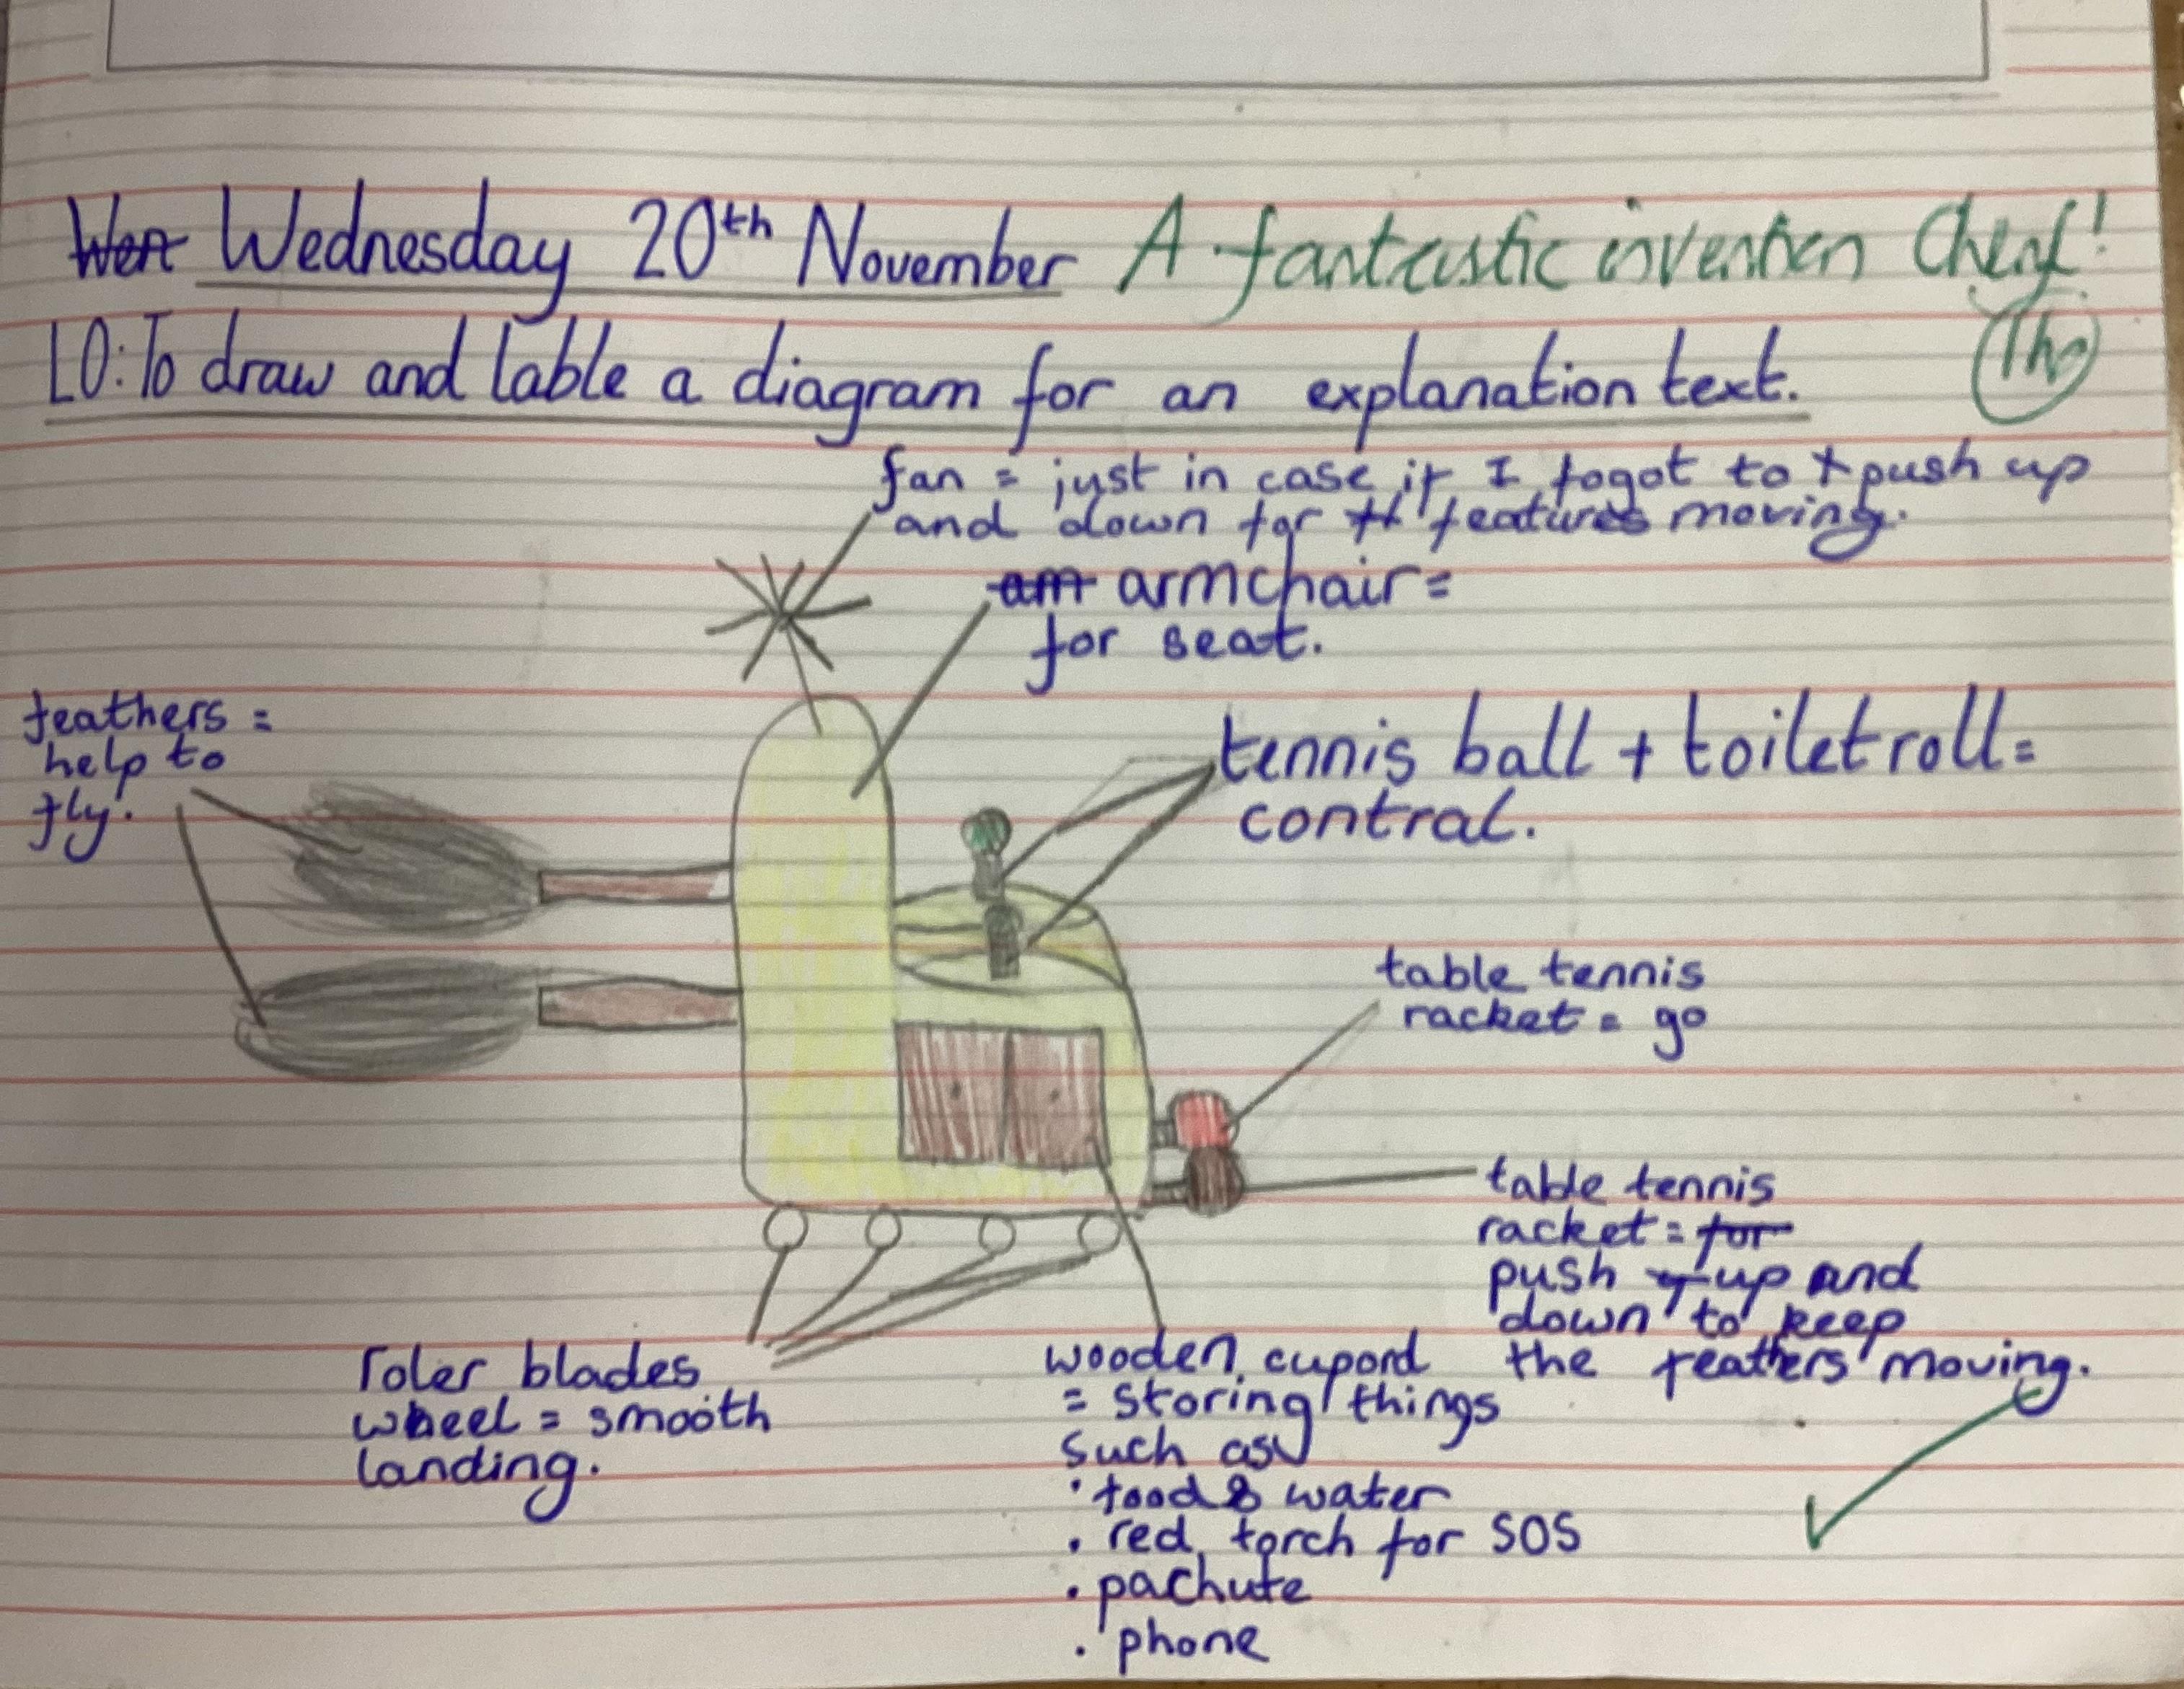 Wen Wednesday 20th November A fantastic invention
LO: To draw and lable a diagram for an explanation text.
fan = just in case if I fogot to push up
and down for features moving.
am armchair =
for seat.
feathers =
help to
fly.
tennis ball + toilet roll =
contral.
table tennis
racket = go
table tennis
racket = for
push up and
down to keep
the feathers moving.
roler blades
wheel = smooth
landing.
wooden cupord
= storing things
such as
• food & water
• red torch for SOS
• pachute
• phone